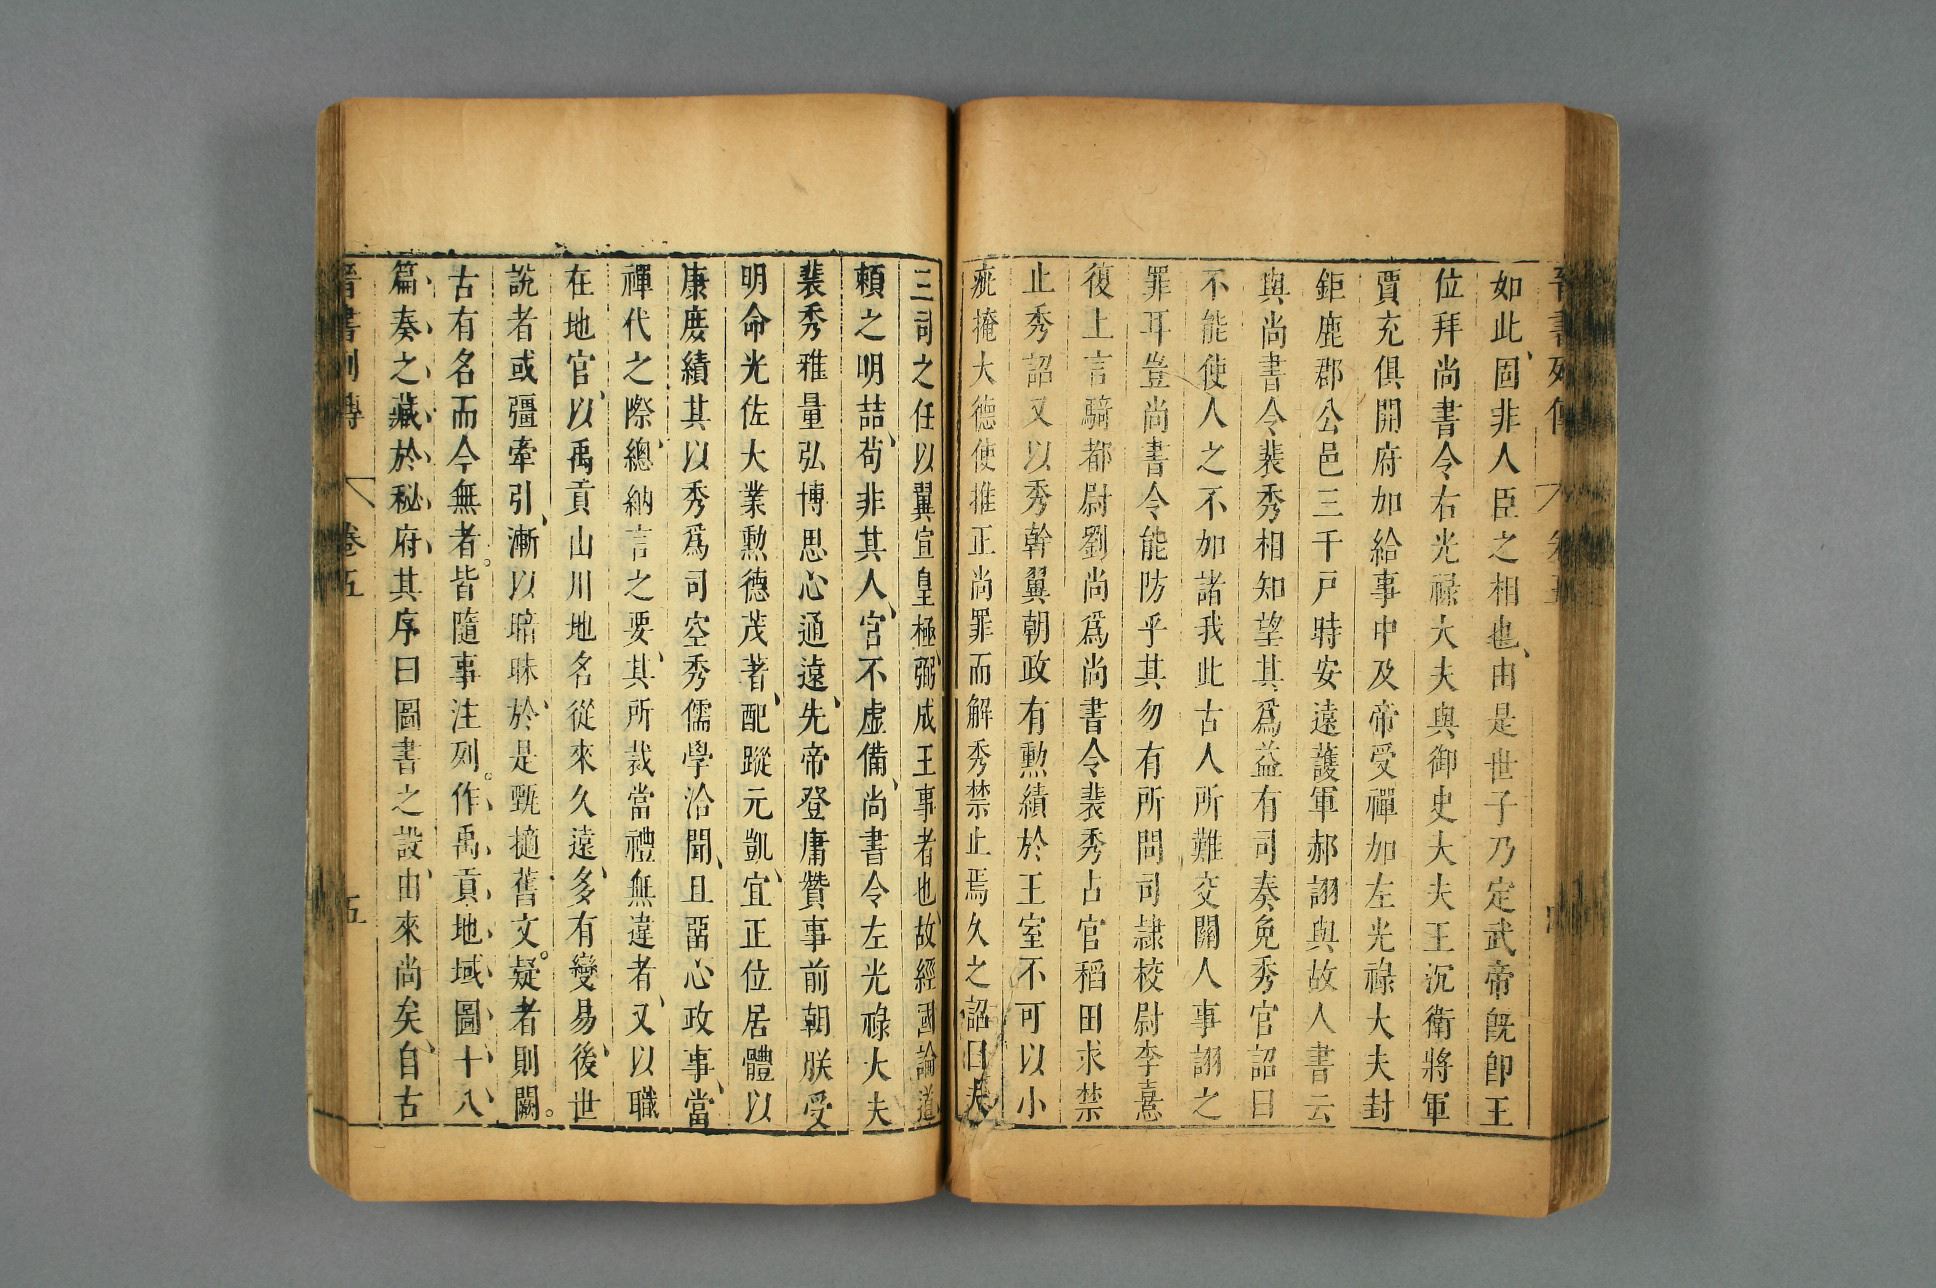 晉書列傳 卷五
如此固非人臣之相也由是世子乃定武帝旣卽王
位拜尚書令右光祿大夫與御史大夫王沉衛將軍
賈充俱開府加給事中及帝受禪加左光祿大夫封
鉅鹿郡公邑三千戸時安遠護軍郝詡與故人書云
與尚書令裴秀相知望其爲益有司奏免秀官詔曰
不能使人之不加諸我此古人所難交關人事詡之
罪耳豈尚書令能防乎其勿有所問司隷校尉李憙
復上言騎都尉劉尚爲尚書令裴秀占官稻田求禁
止秀詔又以秀幹翼朝政有勲績於王室不可以小
疵掩大德使推正尚罪而解秀禁止焉久之詔曰夫
三司之任以翼宣皇極弼成王事者也故經國論道
頼之明喆苟非其人官不虛備尚書令左光祿大夫
裴秀雅量弘博思心通遠先帝登庸贊事前朝朕受
明命光佐大業勲德茂著配蹤元凱宜正位居體以
康庶績其以秀爲司空秀儒學洽聞且畱心政事當
禪代之際總納言之要其所裁當禮無違者又以職
在地官以禹貢山川地名從來久遠多有變易後世
說者或彊牽引漸以暗昧於是甄擿舊文疑者則闕。
古有名而今無者。皆隨事注列。作禹貢地域圖十八
篇奏之藏於秘府其序曰圖書之設由來尚矣自古
晉書列傳 卷五 五